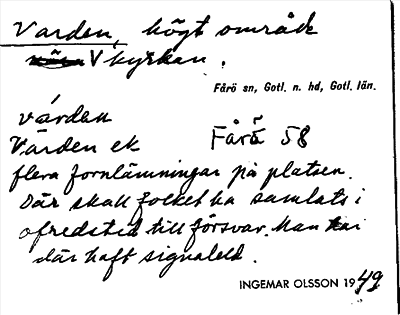 Varden, högt område
V kyrkan.
Fårö sn, Gotl. n. hd, Gotl. län.
várden
Varden ek Fårö 58
flera fornlämningar på platsen.
Där skall folket ha samlats i
ofredstid till försvar. Man
där haft signaleld.
INGEMAR OLSSON 1949